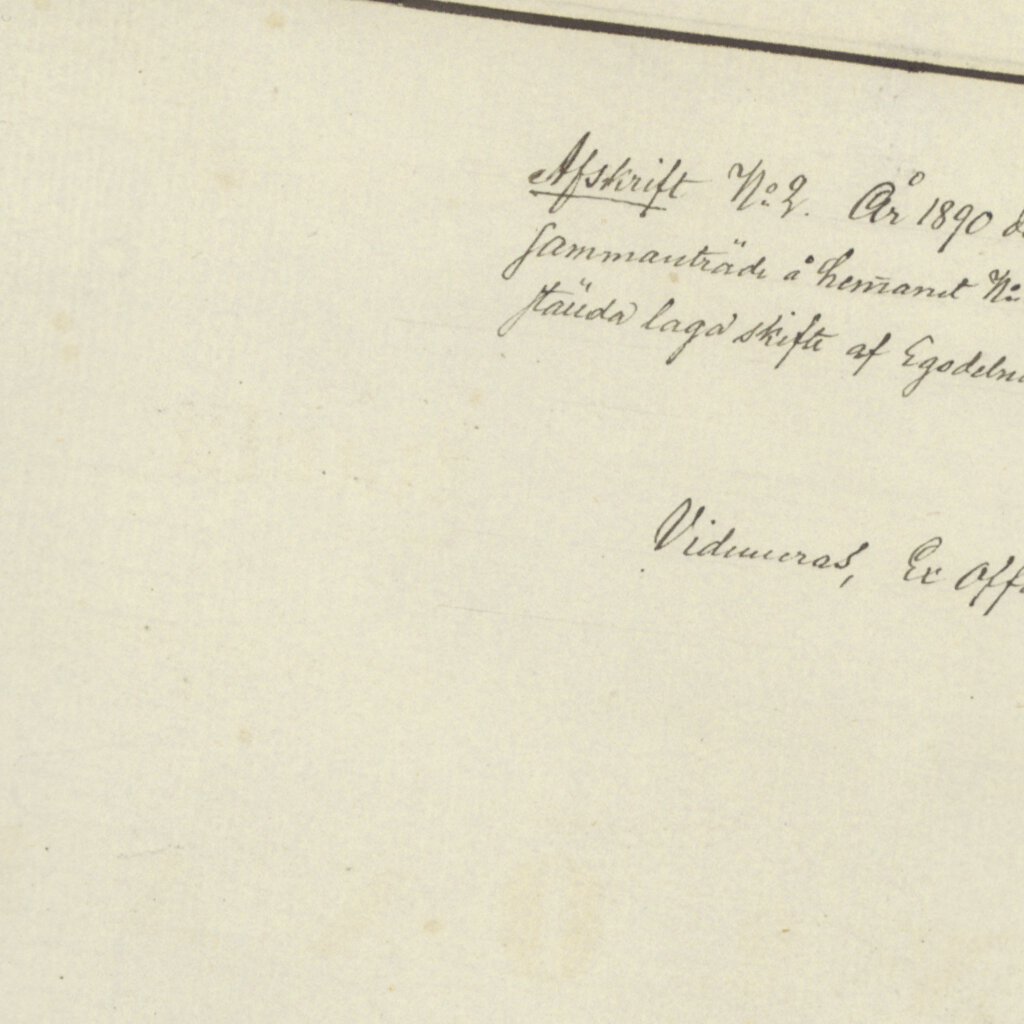 Afskrift No 2. År 1890 d
sammanträde å hem̅anet No
stånda laga skifte af Egodelni
Vidimeras, Ex offi